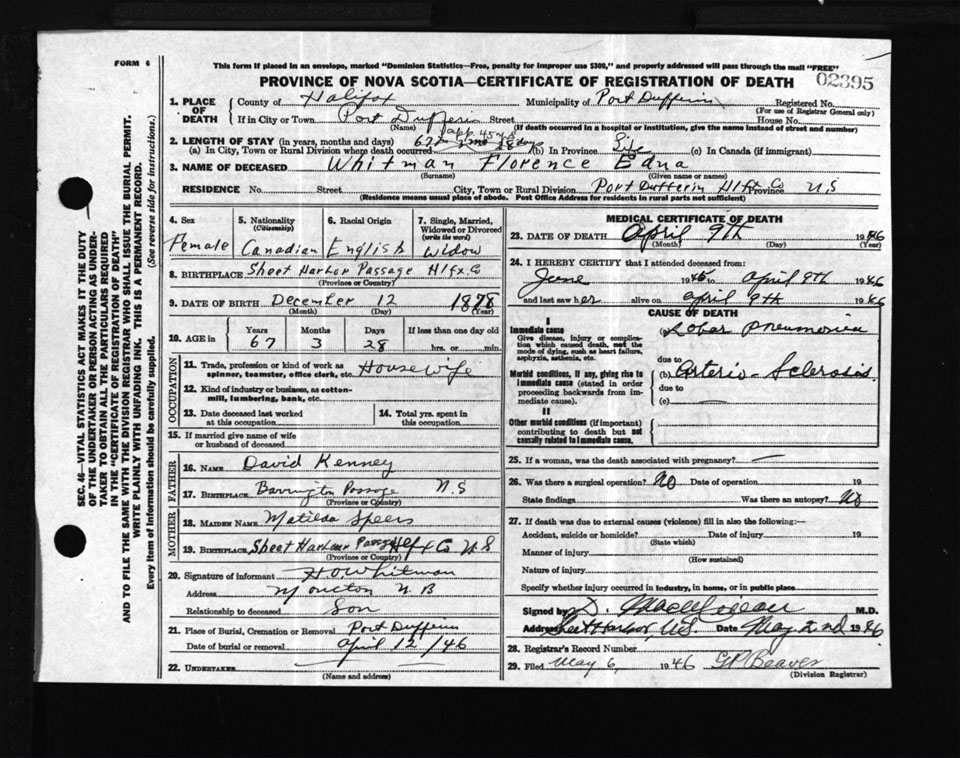 FORM 6
This form if placed in an envelope, marked "Dominion Statistics—Free, penalty for improper use $300," and properly addressed will pass through the mail "FREE"
PROVINCE OF NOVA SCOTIA—CERTIFICATE OF REGISTRATION OF DEATH
02395
1. PLACE OF DEATH
County of Halifax Municipality of Port Dufferin Registered No.
(For use of Registrar General only)
If in City or Town Port Dufferin Street House No.
(Name) (If death occurred in a hospital or institution, give the name instead of street and number)
app. 45 yrs
2. LENGTH OF STAY (in years, months and days)
(a) In City, Town or Rural Division where death occurred (b) In Province Life (c) In Canada (if immigrant)
3. NAME OF DECEASED Whitman Florence Edna
(Surname) (Given name or names)
RESIDENCE No. Street City, Town or Rural Division Port Dufferin Hlfx Co Province N.S
(Residence means usual place of abode. Post Office Address for residents in rural parts not sufficient)
4. Sex
Female
5. Nationality (Citizenship)
Canadian
6. Racial Origin
English
7. Single, Married, Widowed or Divorced (write the word)
Widow
8. BIRTHPLACE Sheet Harbor Passage Hlfx. Co
(Province or Country)
9. DATE OF BIRTH December 12 1878
(Month) (Day) (Year)
10. AGE in
Years Months Days If less than one day old
67 3 28 hrs. or min.
OCCUPATION
11. Trade, profession or kind of work as spinner, teamster, office clerk, etc. Housewife
12. Kind of industry or business, as cotton-mill, lumbering, bank, etc.
13. Date deceased last worked at this occupation
14. Total yrs. spent in this occupation
15. If married give name of wife or husband of deceased
FATHER
16. NAME David Kenney
17. BIRTHPLACE Barrington Passage N.S
(Province or Country)
MOTHER
18. MAIDEN NAME Matilda Speers
19. BIRTHPLACE Sheet Harbour Passage Hlfx Co N.S
(Province or Country)
20. Signature of informant H.O. Whitman
Address Moncton N.B
Relationship to deceased Son
21. Place of Burial, Cremation or Removal Port Dufferin
Date of burial or removal April 12/46
22. UNDERTAKER
(Name and address)
MEDICAL CERTIFICATE OF DEATH
23. DATE OF DEATH April 9th 1946
(Month) (Day) (Year)
24. I HEREBY CERTIFY that I attended deceased from:
June 1945 to April 9th 1946
and last saw her alive on April 9th 1946
CAUSE OF DEATH
I
Immediate cause
Give disease, injury or complication which caused death, not the mode of dying, such as heart failure, asphyxia, asthenia, etc.
(a) Lobar Pneumonia
due to
Morbid conditions, if any, giving rise to immediate cause (stated in order proceeding backwards from immediate cause).
(b) Arterio-Sclerosis
due to
(c)
II
Other morbid conditions (if important) contributing to death but not causally related to immediate cause.
25. If a woman, was the death associated with pregnancy?
26. Was there a surgical operation? No Date of operation 19
State findings Was there an autopsy? No
27. If death was due to external causes (violence) fill in also the following:—
Accident, suicide or homicide? Date of injury 19
(State which)
Manner of injury
(How sustained)
Nature of injury
Specify whether injury occurred in industry, in home, or in public place
Signed by D. M.D.
Address Sheet Harbor, N.S. Date May 2nd 1946
28. Registrar's Record Number
29. Filed May 6, 1946 G P Beaver
(Division Registrar)
SEC. 46—VITAL STATISTICS ACT MAKES IT THE DUTY
OF THE UNDERTAKER OR PERSON ACTING AS UNDERTAKER
TO OBTAIN ALL THE PARTICULARS REQUIRED
IN THE "CERTIFICATE OF REGISTRATION OF DEATH"
AND TO FILE THE SAME WITH THE DIVISION REGISTRAR WHO SHALL ISSUE THE BURIAL PERMIT.
WRITE PLAINLY WITH UNFADING INK. THIS IS A PERMANENT RECORD.
Every item of information should be carefully supplied. (See reverse side for instructions.)